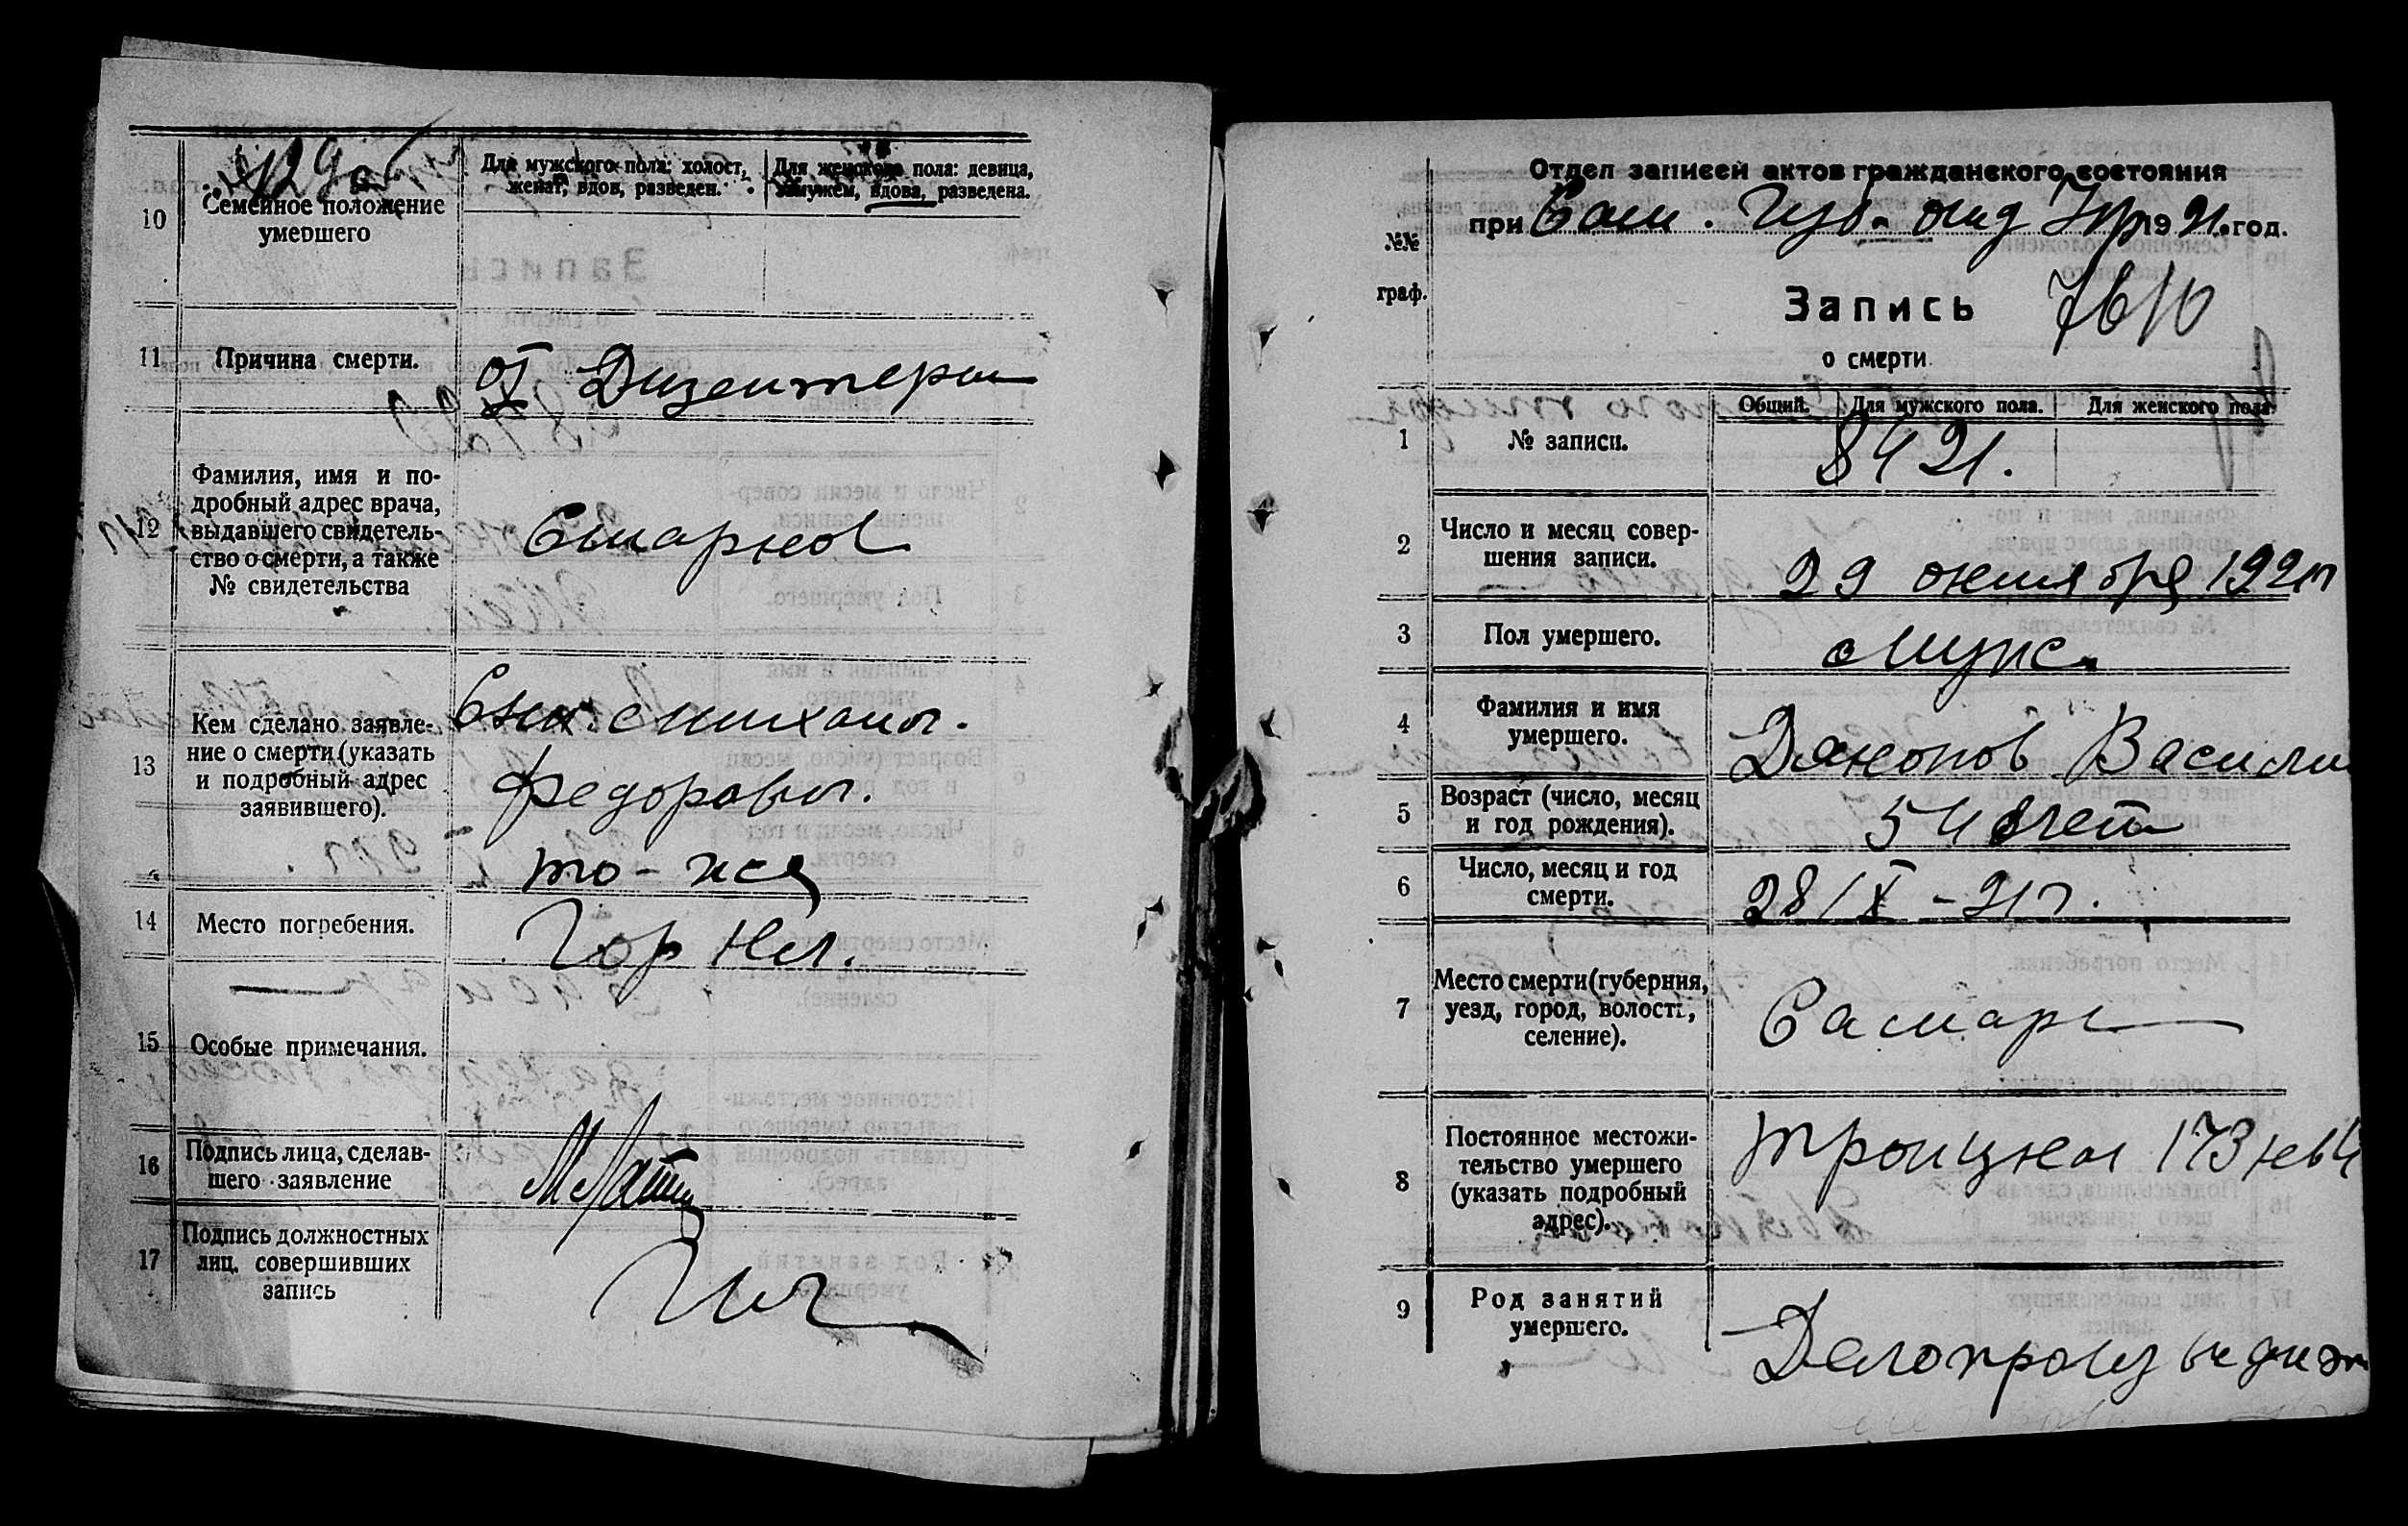 10
Семейное положение
умершего
Для мужского пола: холост,
женат, вдов, разведен.
Для женского пола: девица,
замужем, вдова, разведена.
11
Причина смерти.
от Дизентери
12
Фамилия, имя и по-
дробный адрес врача,
выдавшего свидетель-
ство о смерти, а также
№ свидетельства
13
Кем сделано заявле-
ние о смерти (указать
и подробный адрес
заявившего).
то-же
14
Место погребения.
Гор Кл.
15
Особые примечания.
16
Подпись лица, сделав-
шего заявление
17
Подпись должностных
лиц. совершивших
запись
Отдел записей актов гражданского состояния
при Сам. Губ. отд Упр 1921 год.
№№
граф.
Запись
о смерти
Общий.
Для мужского пола.
Для женского пола
1
№ записи.
8421.
2
Число и месяц совер-
шения записи.
29 октября 1921г
3
Пол умершего.
Мужс.
4
Фамилия и имя
умершего.
Дяконов Васили
5
Возраст (число, месяц
и год рождения).
54 лет
6
Число, месяц и год
смерти.
28/X-21г.
7
Место смерти (губерния,
уезд, город, волость,
селение).
Самара
8
Постоянное местожи-
тельство умершего
(указать подробный
адрес).
Троицкая 173 кв 4
9
Род занятий
умершего.